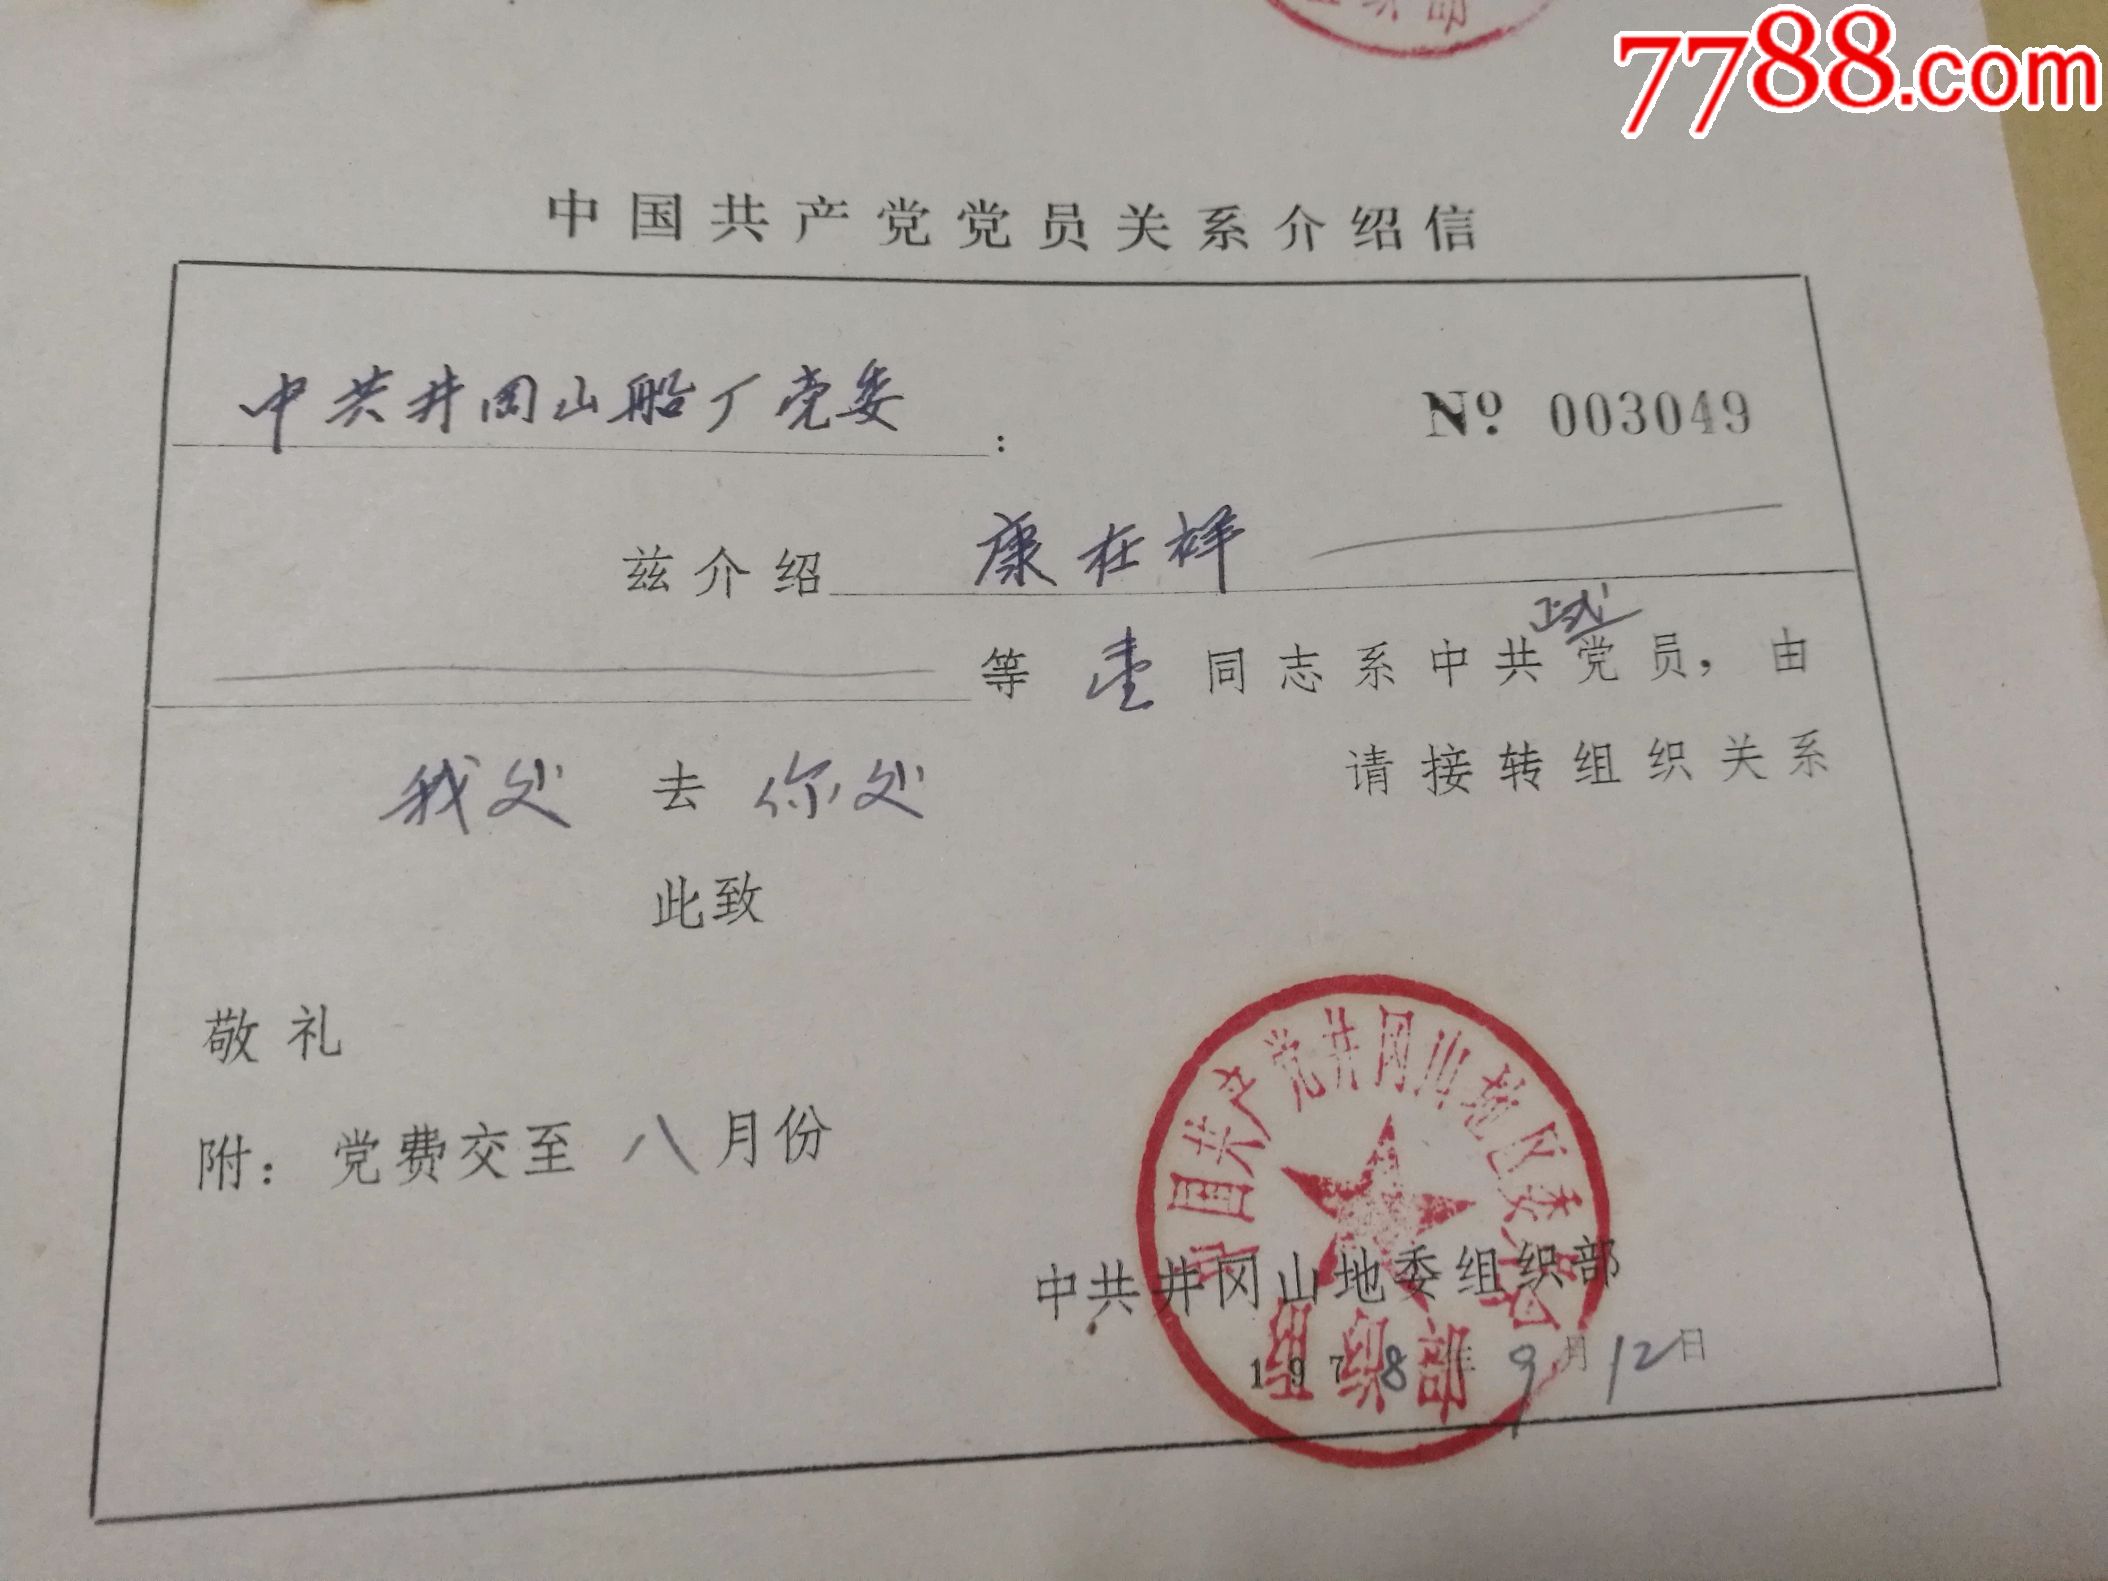 组织部
7788.com
中国共产党党员关系介绍信
中共井冈山船厂党委:
No 003049
兹介绍 康在祥
等 壹 同志系中共正式党员，由
我处 去 你处 请接转组织关系
此致
敬礼
附：党费交至八月份
中国共产党井冈山地区委员会
组织部
中共井冈山地委组织部
1978年9月12日